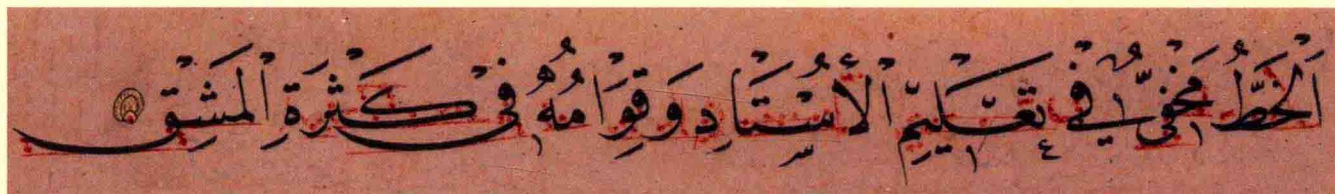 اَلْخَطُّ مَخْفِيٌّ فِي تَعْلِيمِ الْأُسْتَادِ وَقِوَامُهُ فِي كَثْرَةِ الْمَشْقِ